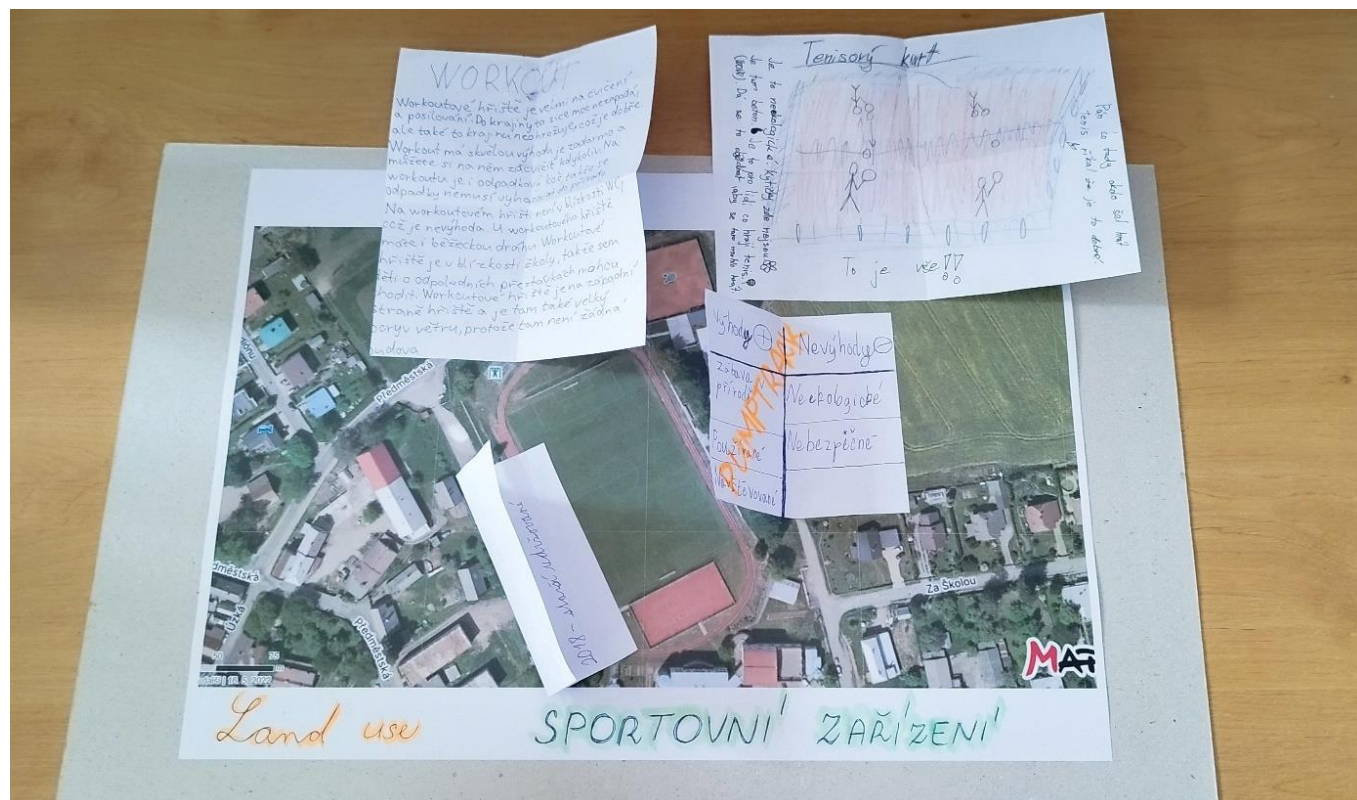 WORKOUT
Workoutové hřiště je velmi na cvičení
a posilování. Do krajiny to sice moc nezapadá,
ale také to krajinu neohrožuje, což je dobře.
Workout má skvělou výhodu je zadarmo a
můžete si na něm zacvičit kdykoliv. Na
workoutu je i odpadkový koš takže se
odpadky nemusí vyhazovat do přírody
Na workoutovém hřišti není v blízkosti WC,
což je nevýhoda. U workoutového hřiště
máte i běžeckou dráhu. Workoutové
hřiště je v blízkosti školy, takže sem
děti o odpoledních přestávkách mohou
chodit. Workoutové hřiště je na západní
straně hřiště a je tam také velký
poryv větru, protože tam není žádná
budova
Tenisový kurt
Je to neekologické. Kytičky zde nejsou
Je tam beton. Je to pro lidi co hrají tenis.
To je vše!!
Pán co tady okolo šel hrát
tenis říkal že je to dobré
Výhody +
Nevýhody -
Zábava
přírodě
Neekologické
Používané
Nebezpečné
Navštěvované
PUMPTRACK
2018 -
Předměstská
Předměstská
Úzká
Za Školou
50
75
16. 5. 2022
MAT
Land use
SPORTOVNÍ ZAŘÍZENÍ